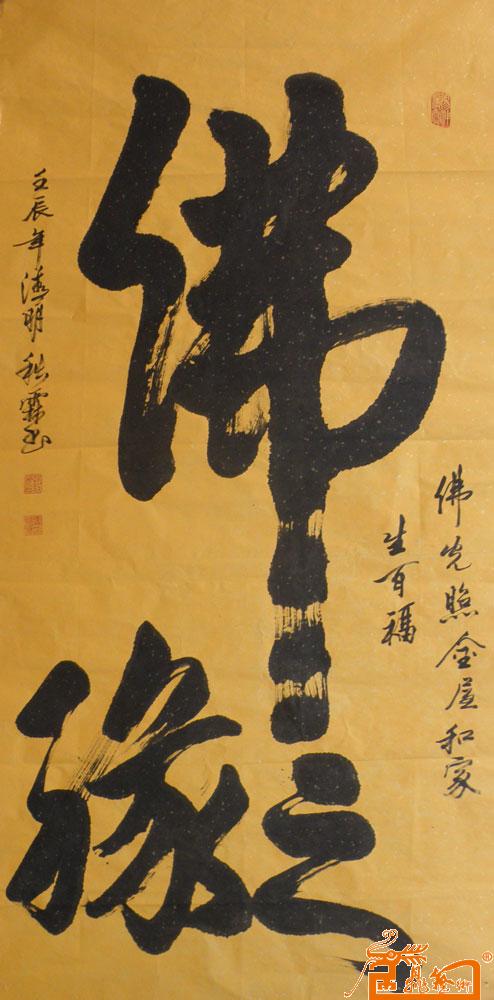 佛之
缘
佛光照金屋和家
生百福
壬辰年清明
书